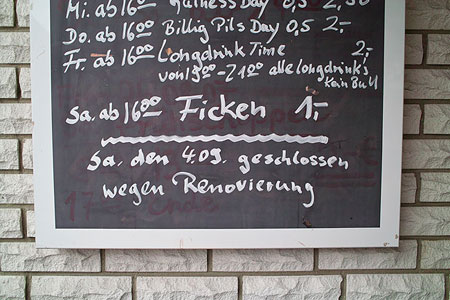 Mi. ab 16⁰⁰ Guiness Day 0,5 2,50
Do. ab 16⁰⁰ Billig Pils Day 0,5 2,-
Fr. ab 16⁰⁰ Longdrink Time 2,-
von 19⁰⁰-21⁰⁰ alle longdrink's
kein Bull
Sa. ab 16⁰⁰ Ficken 1,-
Sa. den 4.09. geschlossen
wegen Renovierung